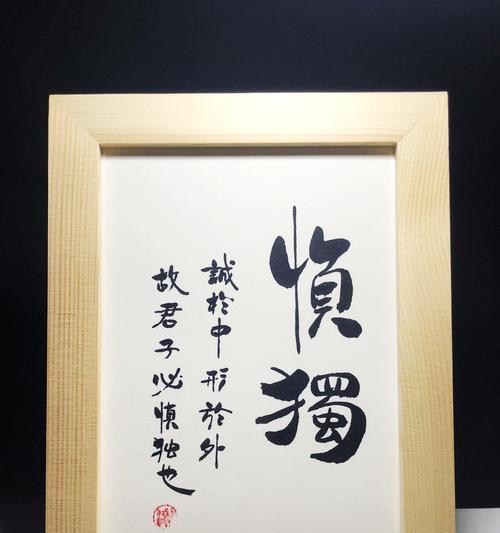 慎獨
誠於中形於外
故君子必慎独也